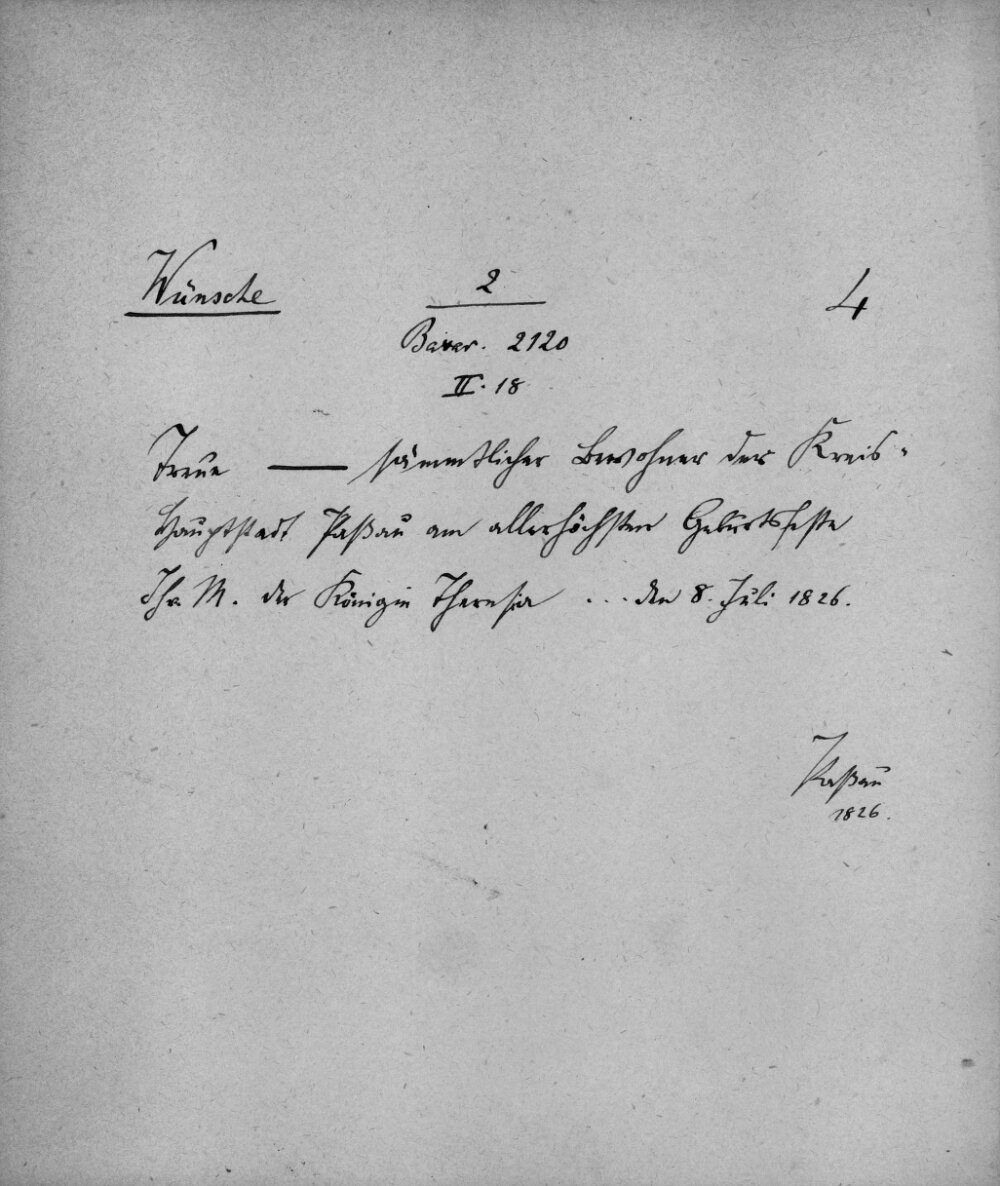 Wünsche 2 4
Bavar. 2120
II. 18
Treue —— sämmtlicher Bewohner der Kreis-
Hauptstadt Paßau am allerhöchsten Geburtsfeste
Ihr. M. der Königin Theresia ... den 8. Juli 1826.
Paßau
1826.